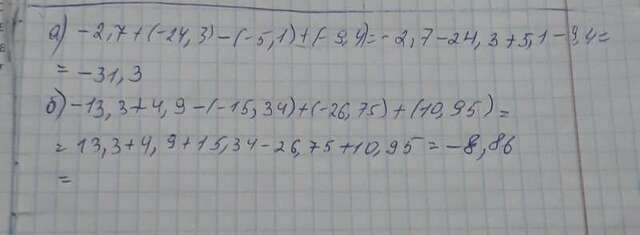 а) -2,7+(-24,3)-(-5,1)+(-9,4)=-2,7-24,3+5,1-9,4=
= -31,3
б) -13,3+4,9-(-15,34)+(-26,75)+(10,95)=
= 13,3+4,9+15,34-26,75+10,95=-8,86
=